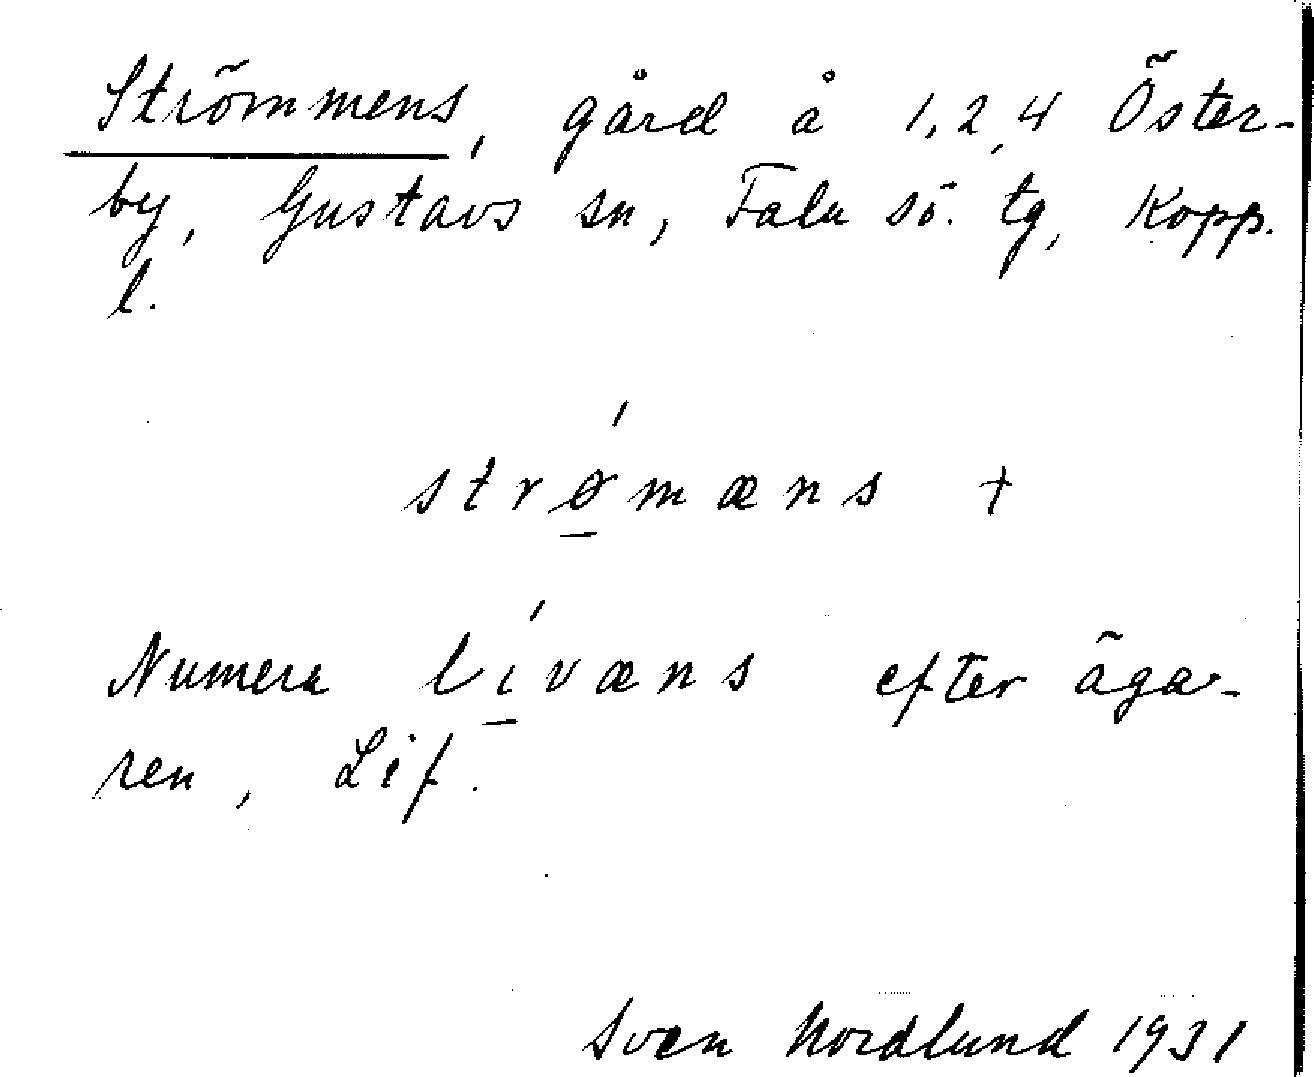 Strömmens, gård å 1, 2, 4 Öster-
by, Gustavs sn, Falu sö. tg, Kopp.
l.
strǿ̱mæns +
Numera lí̱væns efter äga-
ren, Lif.
Sven Nordlund 1931